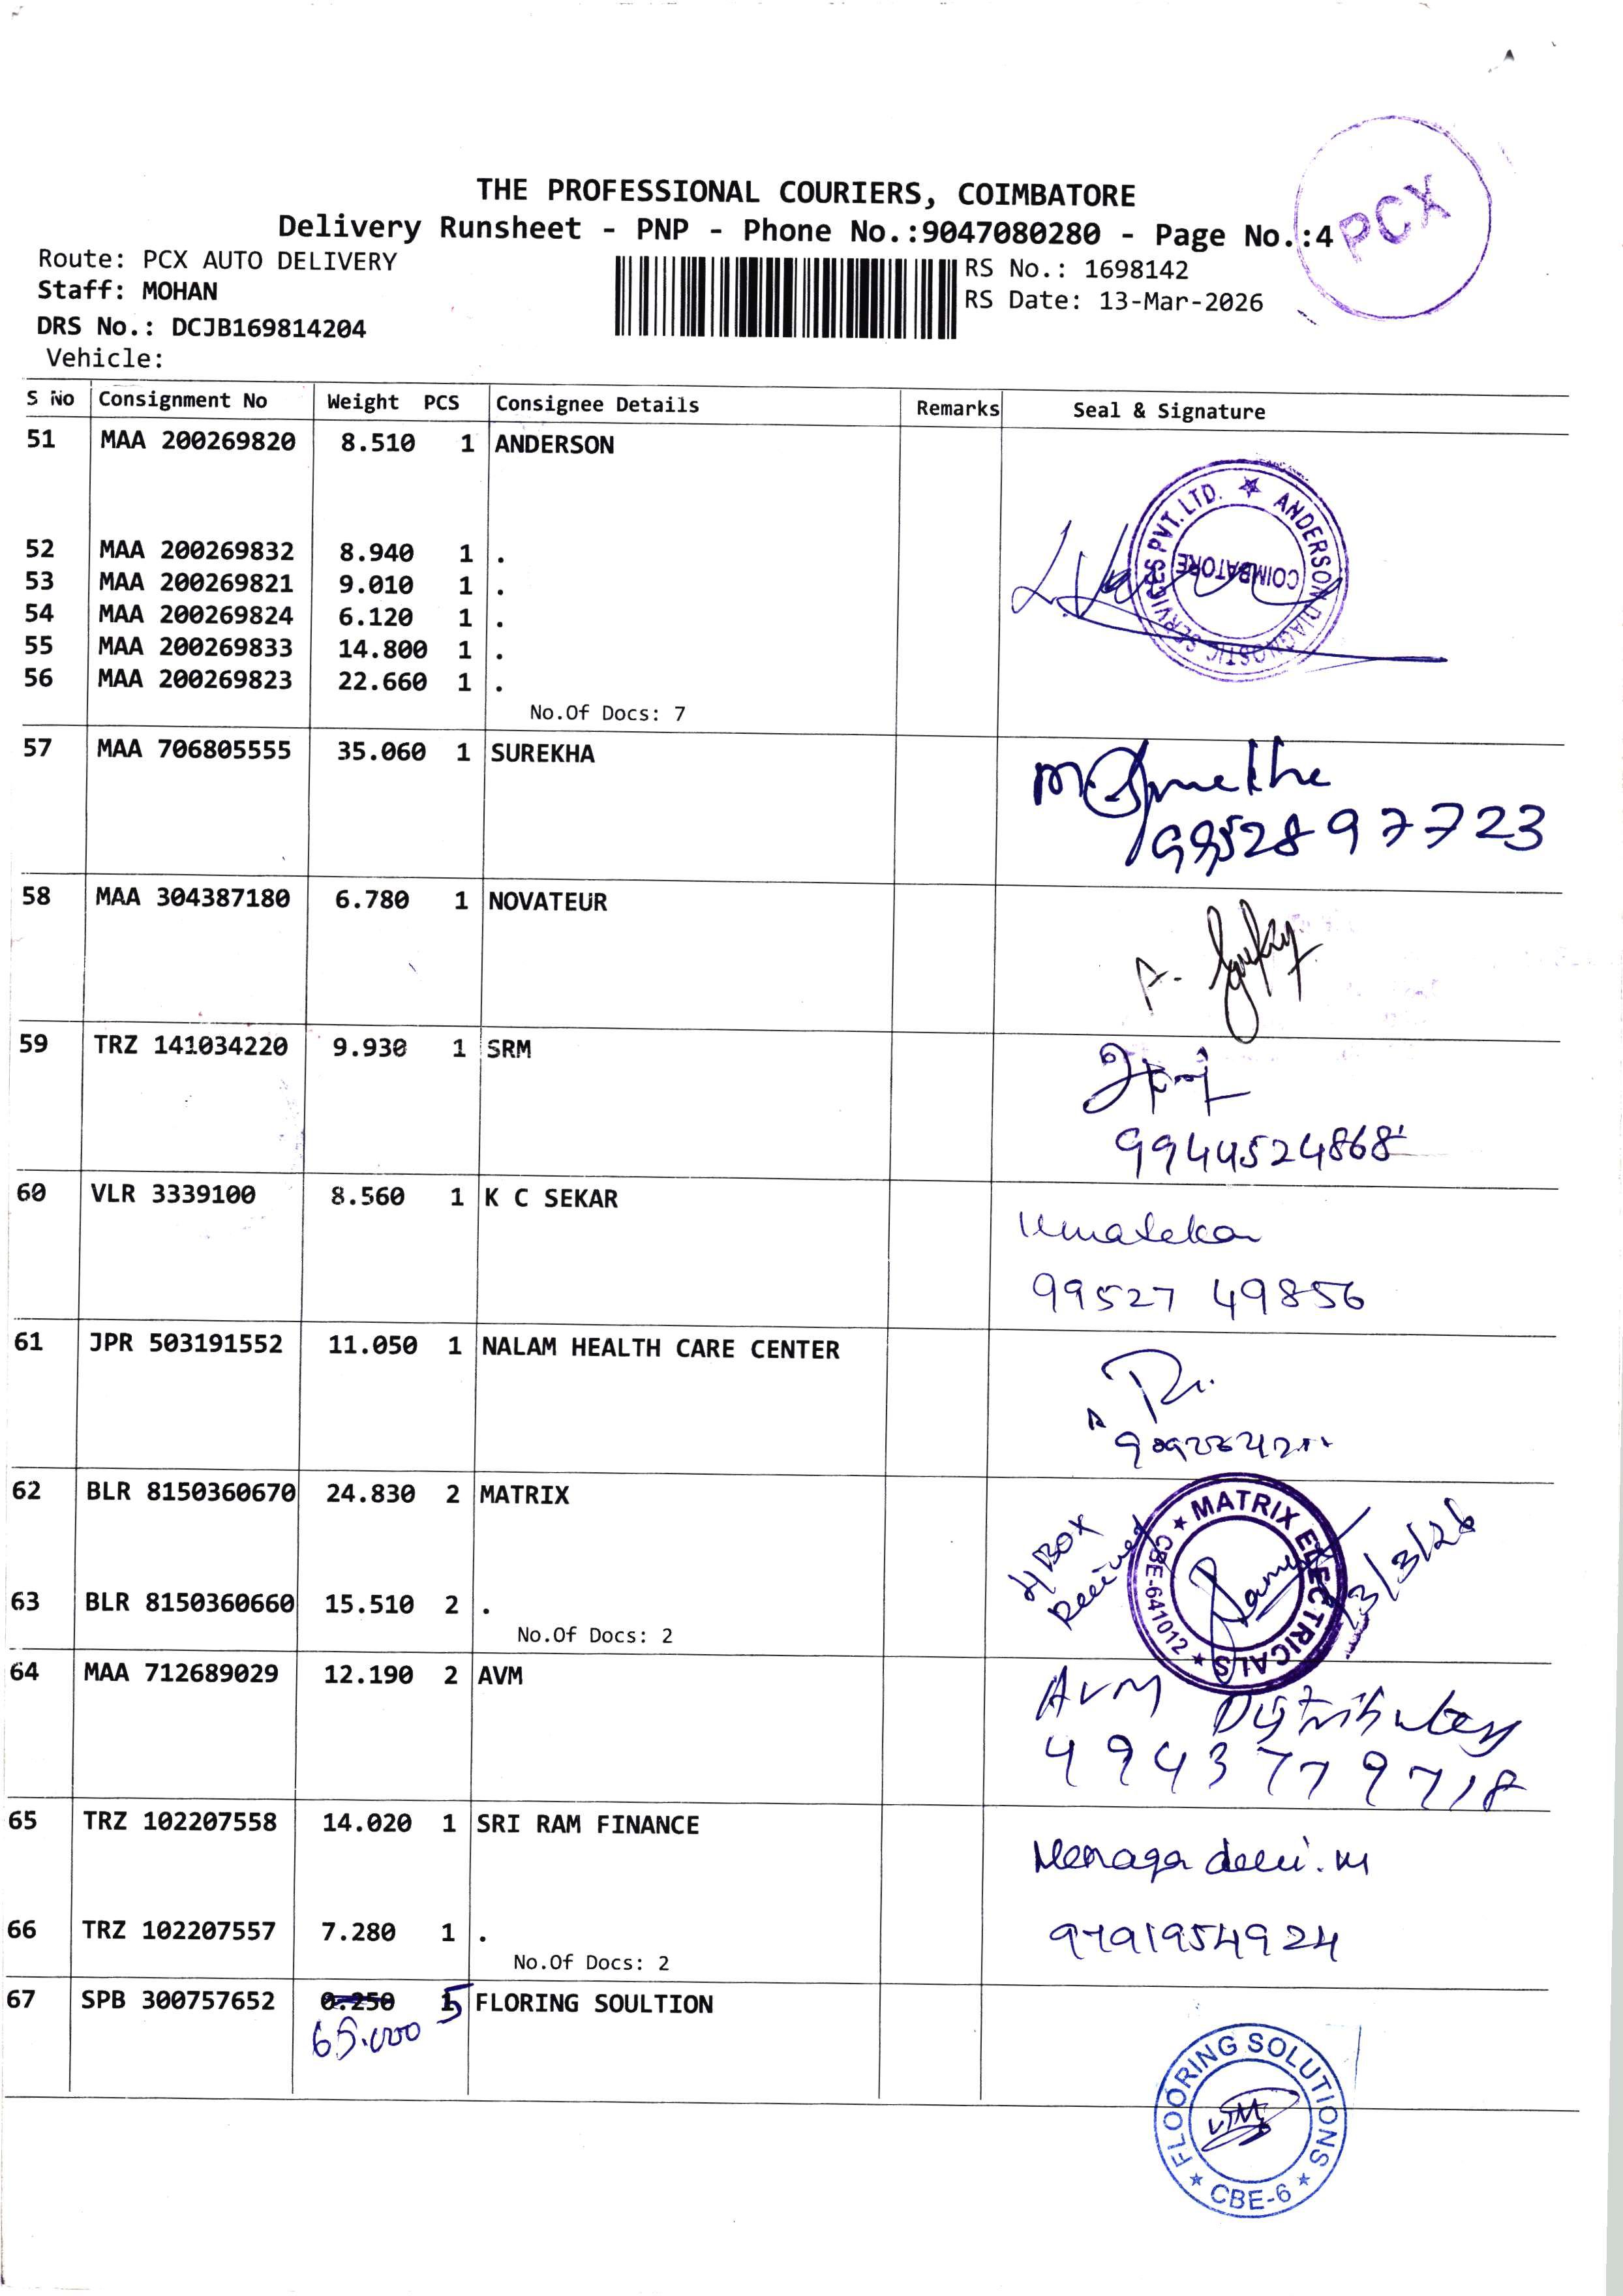 PCX
THE PROFESSIONAL COURIERS, COIMBATORE
Delivery Runsheet - PNP - Phone No.:9047080280 - Page No.:4
Route: PCX AUTO DELIVERY
Staff: MOHAN
DRS No.: DCJB169814204
Vehicle:
RS No.: 1698142
RS Date: 13-Mar-2026
S No Consignment No Weight PCS Consignee Details Remarks Seal & Signature
51 MAA 200269820 8.510 1 ANDERSON
52 MAA 200269832 8.940 1 .
53 MAA 200269821 9.010 1 .
54 MAA 200269824 6.120 1 .
55 MAA 200269833 14.800 1 .
56 MAA 200269823 22.660 1 .
No.Of Docs: 7
ANDERSON DIAGNOSTIC SERVICES PVT. LTD.
COIMBATORE
57 MAA 706805555 35.060 1 SUREKHA
9952897723
58 MAA 304387180 6.780 1 NOVATEUR
59 TRZ 141034220 9.930 1 SRM
9944524868
60 VLR 3339100 8.560 1 K C SEKAR
Umasekar
99527 49856
61 JPR 503191552 11.050 1 NALAM HEALTH CARE CENTER
62 BLR 8150360670 24.830 2 MATRIX
63 BLR 8150360660 15.510 2 .
No.Of Docs: 2
4 BOX
Received
MATRIX ELECTRICALS
CBE-641012
13/3/26
64 MAA 712689029 12.190 2 AVM
AVM Distributors
65 TRZ 102207558 14.020 1 SRI RAM FINANCE
Menaga devi. M
66 TRZ 102207557 7.280 1 .
9791954924
No.Of Docs: 2
67 SPB 300757652 0.250 5 FLORING SOULTION
65.000
FLOORING SOLUTIONS
CBE-6